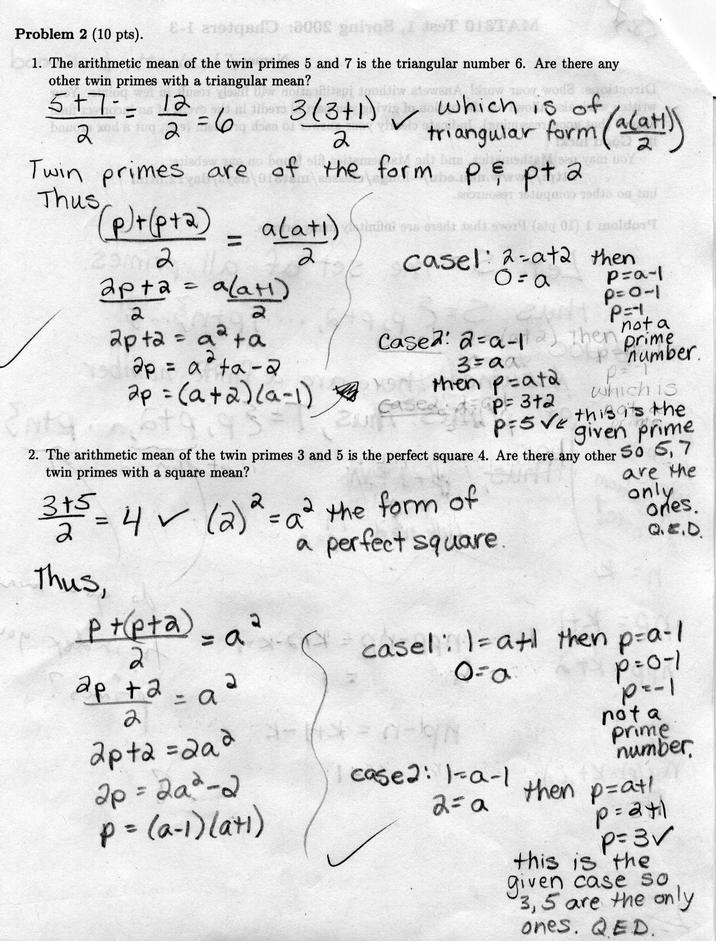 Problem 2 (10 pts).
1. The arithmetic mean of the twin primes 5 and 7 is the triangular number 6. Are there any
other twin primes with a triangular mean?
5+7/2 = 12/2 = 6 3(3+1)/2 ✓ which is of
triangular form (a(a+1)/2)
Twin primes are of the form p & p+2
Thus,
(p)+(p+2)/2 = a(a+1)/2
2p+2/2 = a(a+1)/2
2p+2 = a²+a
2p = a²+a-2
2p = (a+2)(a-1)
case1: 2=a+2 then
0=a p=a-1
p=0-1
p=-1
not a
prime
number.
Case2: 2=a-1 Then
3=a
then p=a+2
p=3+2
p=5 ✓
which is
this is the
given prime
so 5,7
are the
only
ones.
Q.E.D.
2. The arithmetic mean of the twin primes 3 and 5 is the perfect square 4. Are there any other
twin primes with a square mean?
3+5/2 = 4 ✓ (2)² = a² the form of
a perfect square.
Thus,
p+(p+2)/2 = a²
2p+2/2 = a²
2p+2 = 2a²
2p = 2a²-2
p = (a-1)(a+1)
case1: 1=a+1 then p=a-1
0=a p=0-1
p=-1
not a
prime
number.
case2: 1=a-1 then p=a+1
2=a p=2+1
p=3✓
this is the
given case so
3,5 are the only
ones. QED.